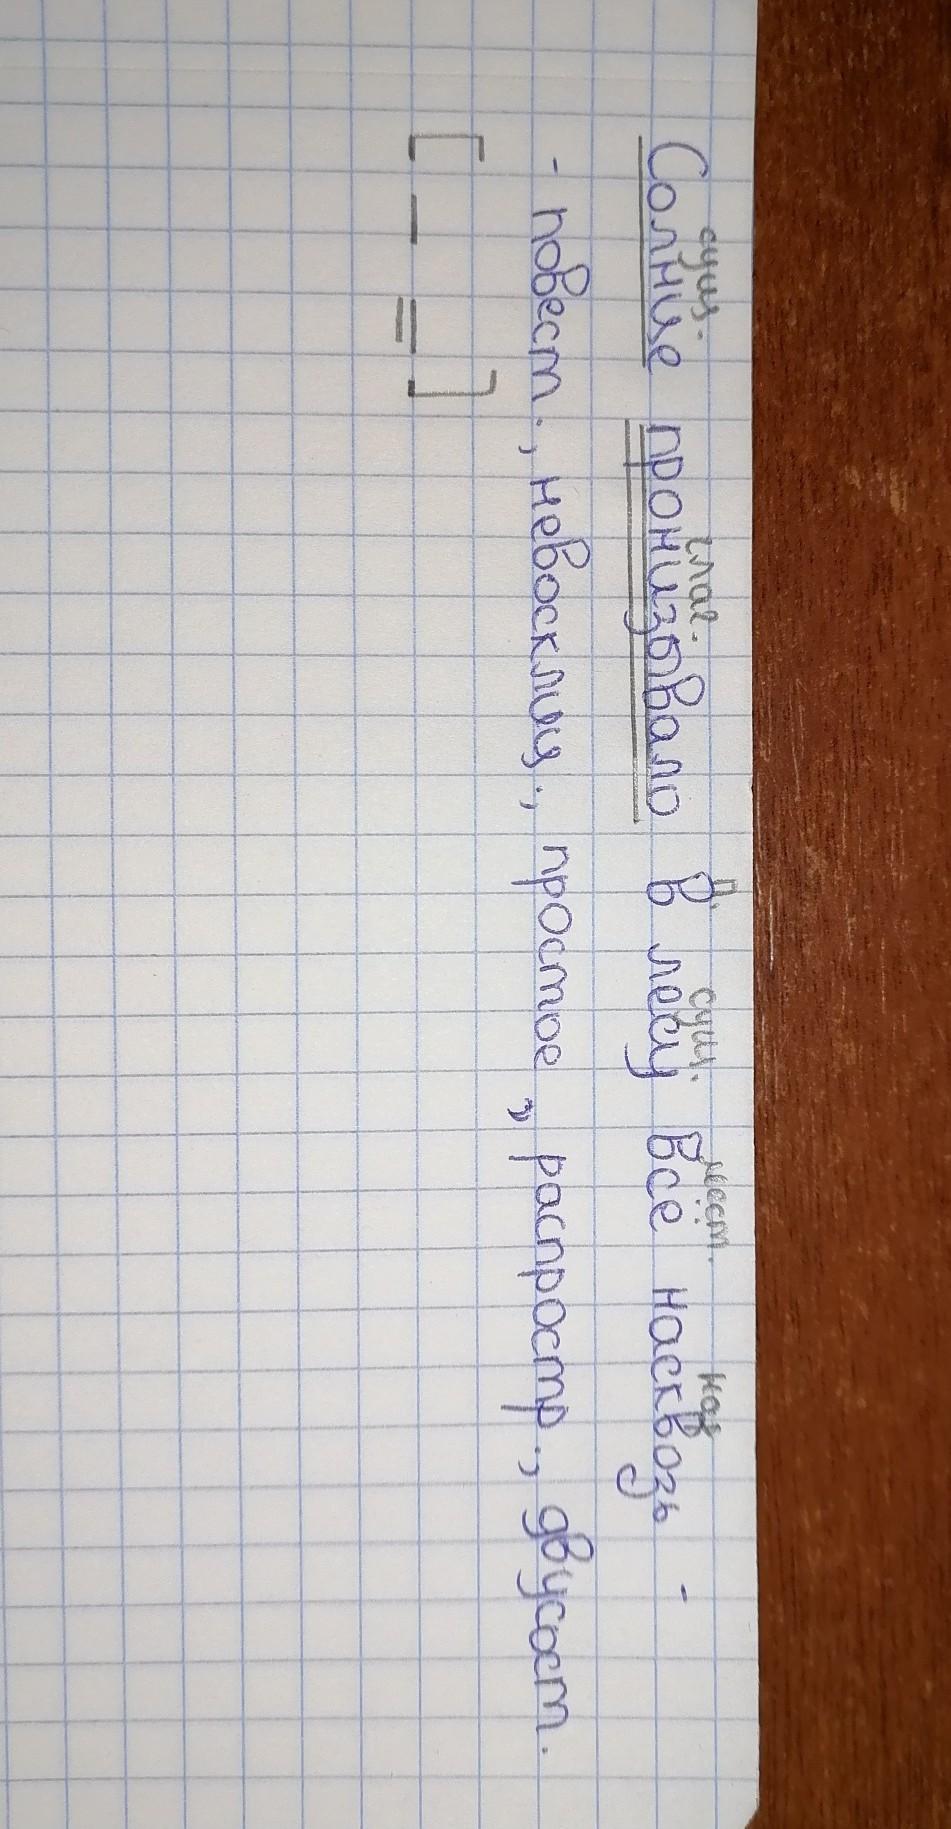 сущ. глаг. п. сущ. мест. нар
Солнце пронизывало в лесу все насквозь -
- повест., невосклиц., простое „ распростр., двусост.
[ — = ]